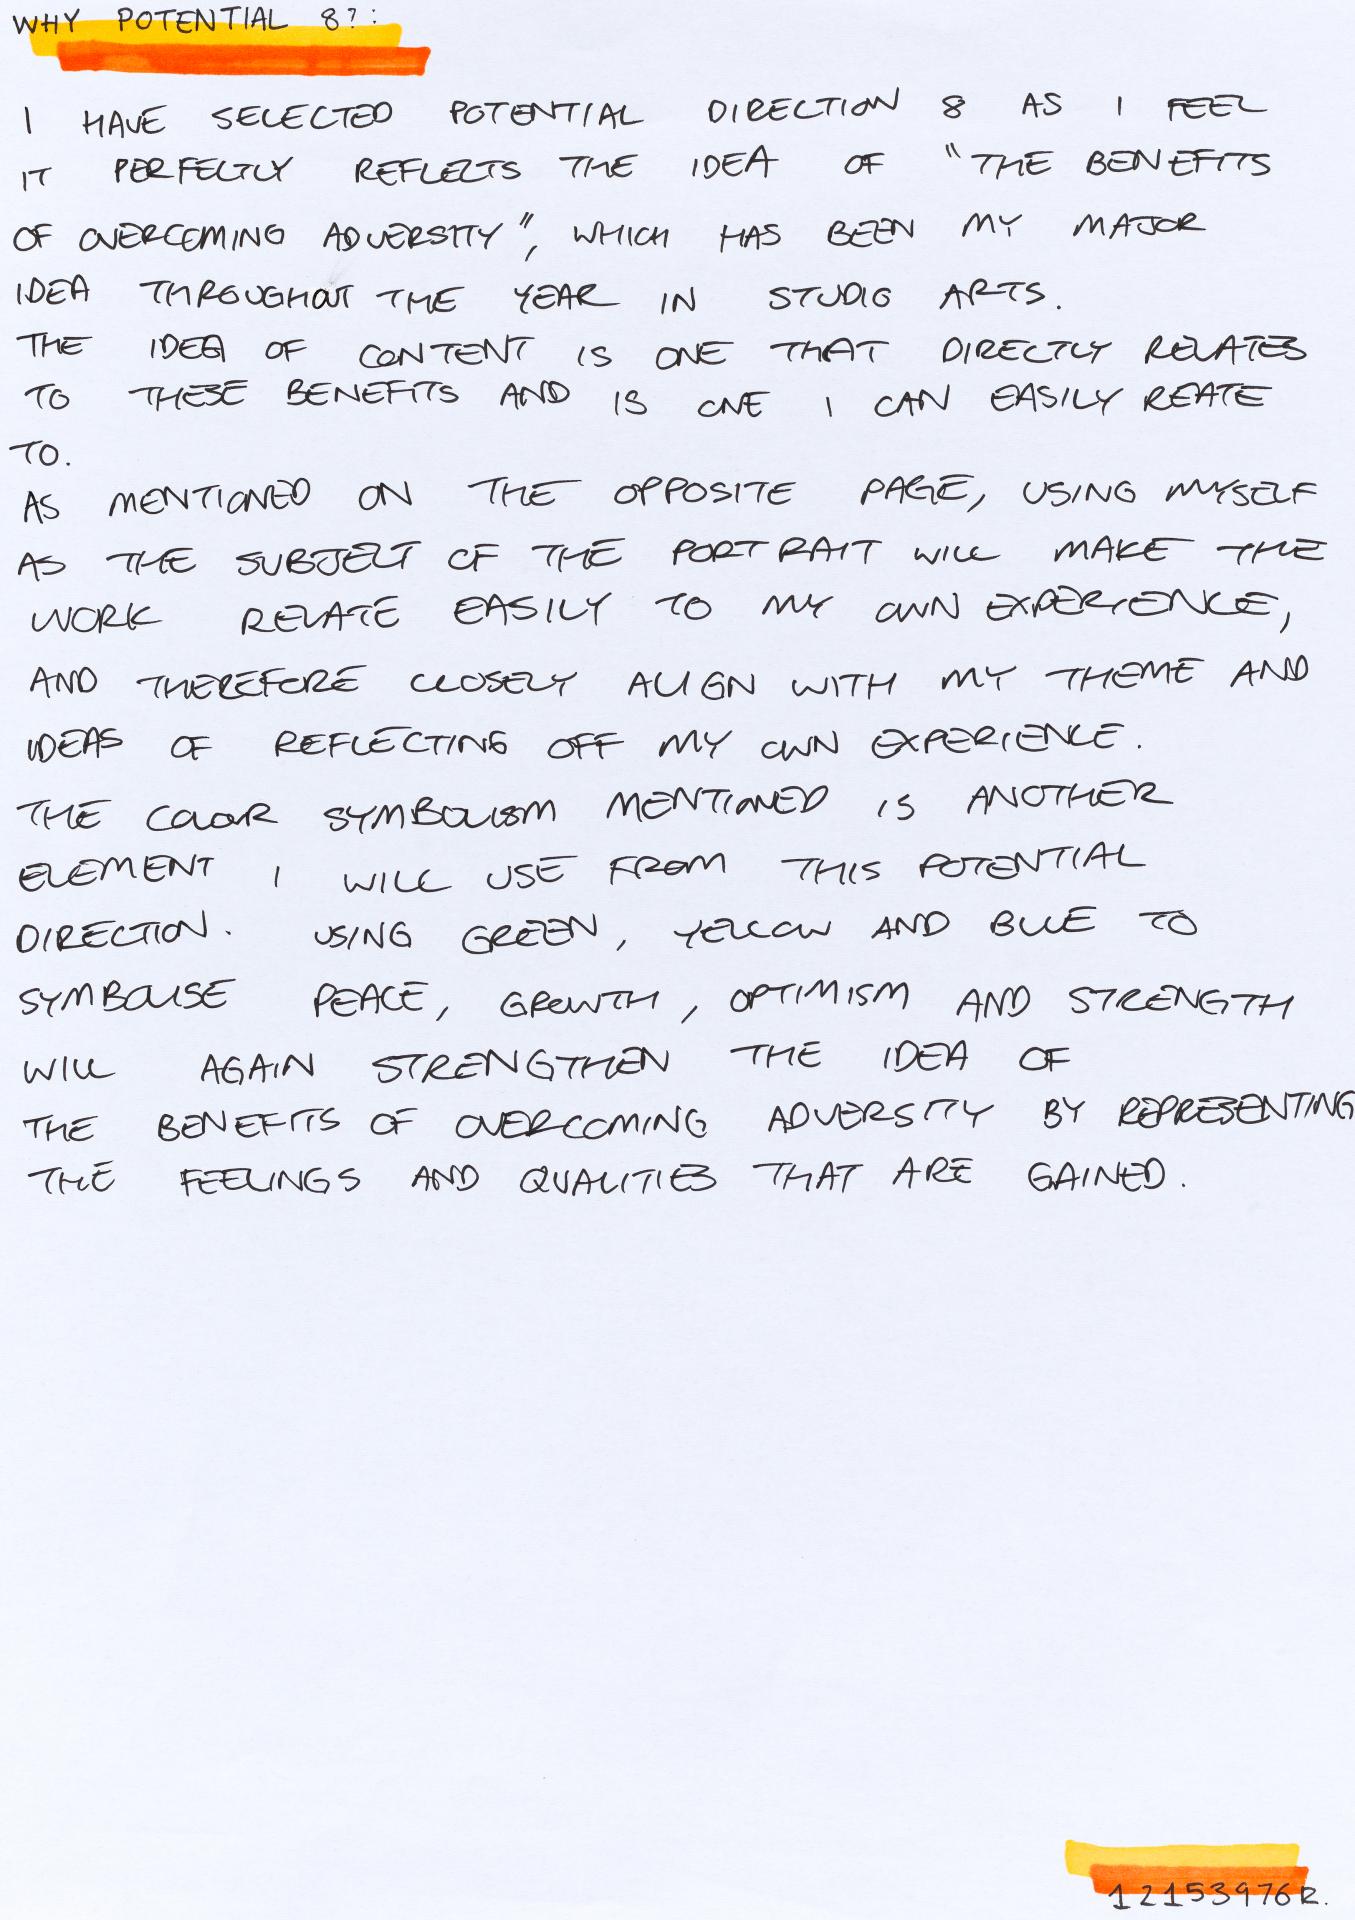 WHY POTENTIAL 8?:
I HAVE SELECTED POTENTIAL DIRECTION 8 AS I FEEL
IT PERFECTLY REFLECTS THE IDEA OF "THE BENEFITS
OF OVERCOMING ADVERSITY", WHICH HAS BEEN MY MAJOR
IDEA THROUGHOUT THE YEAR IN STUDIO ARTS.
THE IDEA OF CONTENT IS ONE THAT DIRECTLY RELATES
TO THESE BENEFITS AND IS ONE I CAN EASILY REATE
TO.
AS MENTIONED ON THE OPPOSITE PAGE, USING MYSELF
AS THE SUBJECT OF THE PORTRAIT WILL MAKE THE
WORK RELATE EASILY TO MY OWN EXPERIENCE,
AND THEREFORE CLOSELY ALIGN WITH MY THEME AND
IDEAS OF REFLECTING OFF MY OWN EXPERIENCE.
THE COLOR SYMBOLISM MENTIONED IS ANOTHER
ELEMENT I WILL USE FROM THIS POTENTIAL
DIRECTION. USING GREEN, YELLOW AND BLUE TO
SYMBOLISE PEACE, GROWTH, OPTIMISM AND STRENGTH
WILL AGAIN STRENGTHEN THE IDEA OF
THE BENEFITS OF OVERCOMING ADVERSITY BY REPRESENTING
THE FEELINGS AND QUALITIES THAT ARE GAINED.
12153976R.